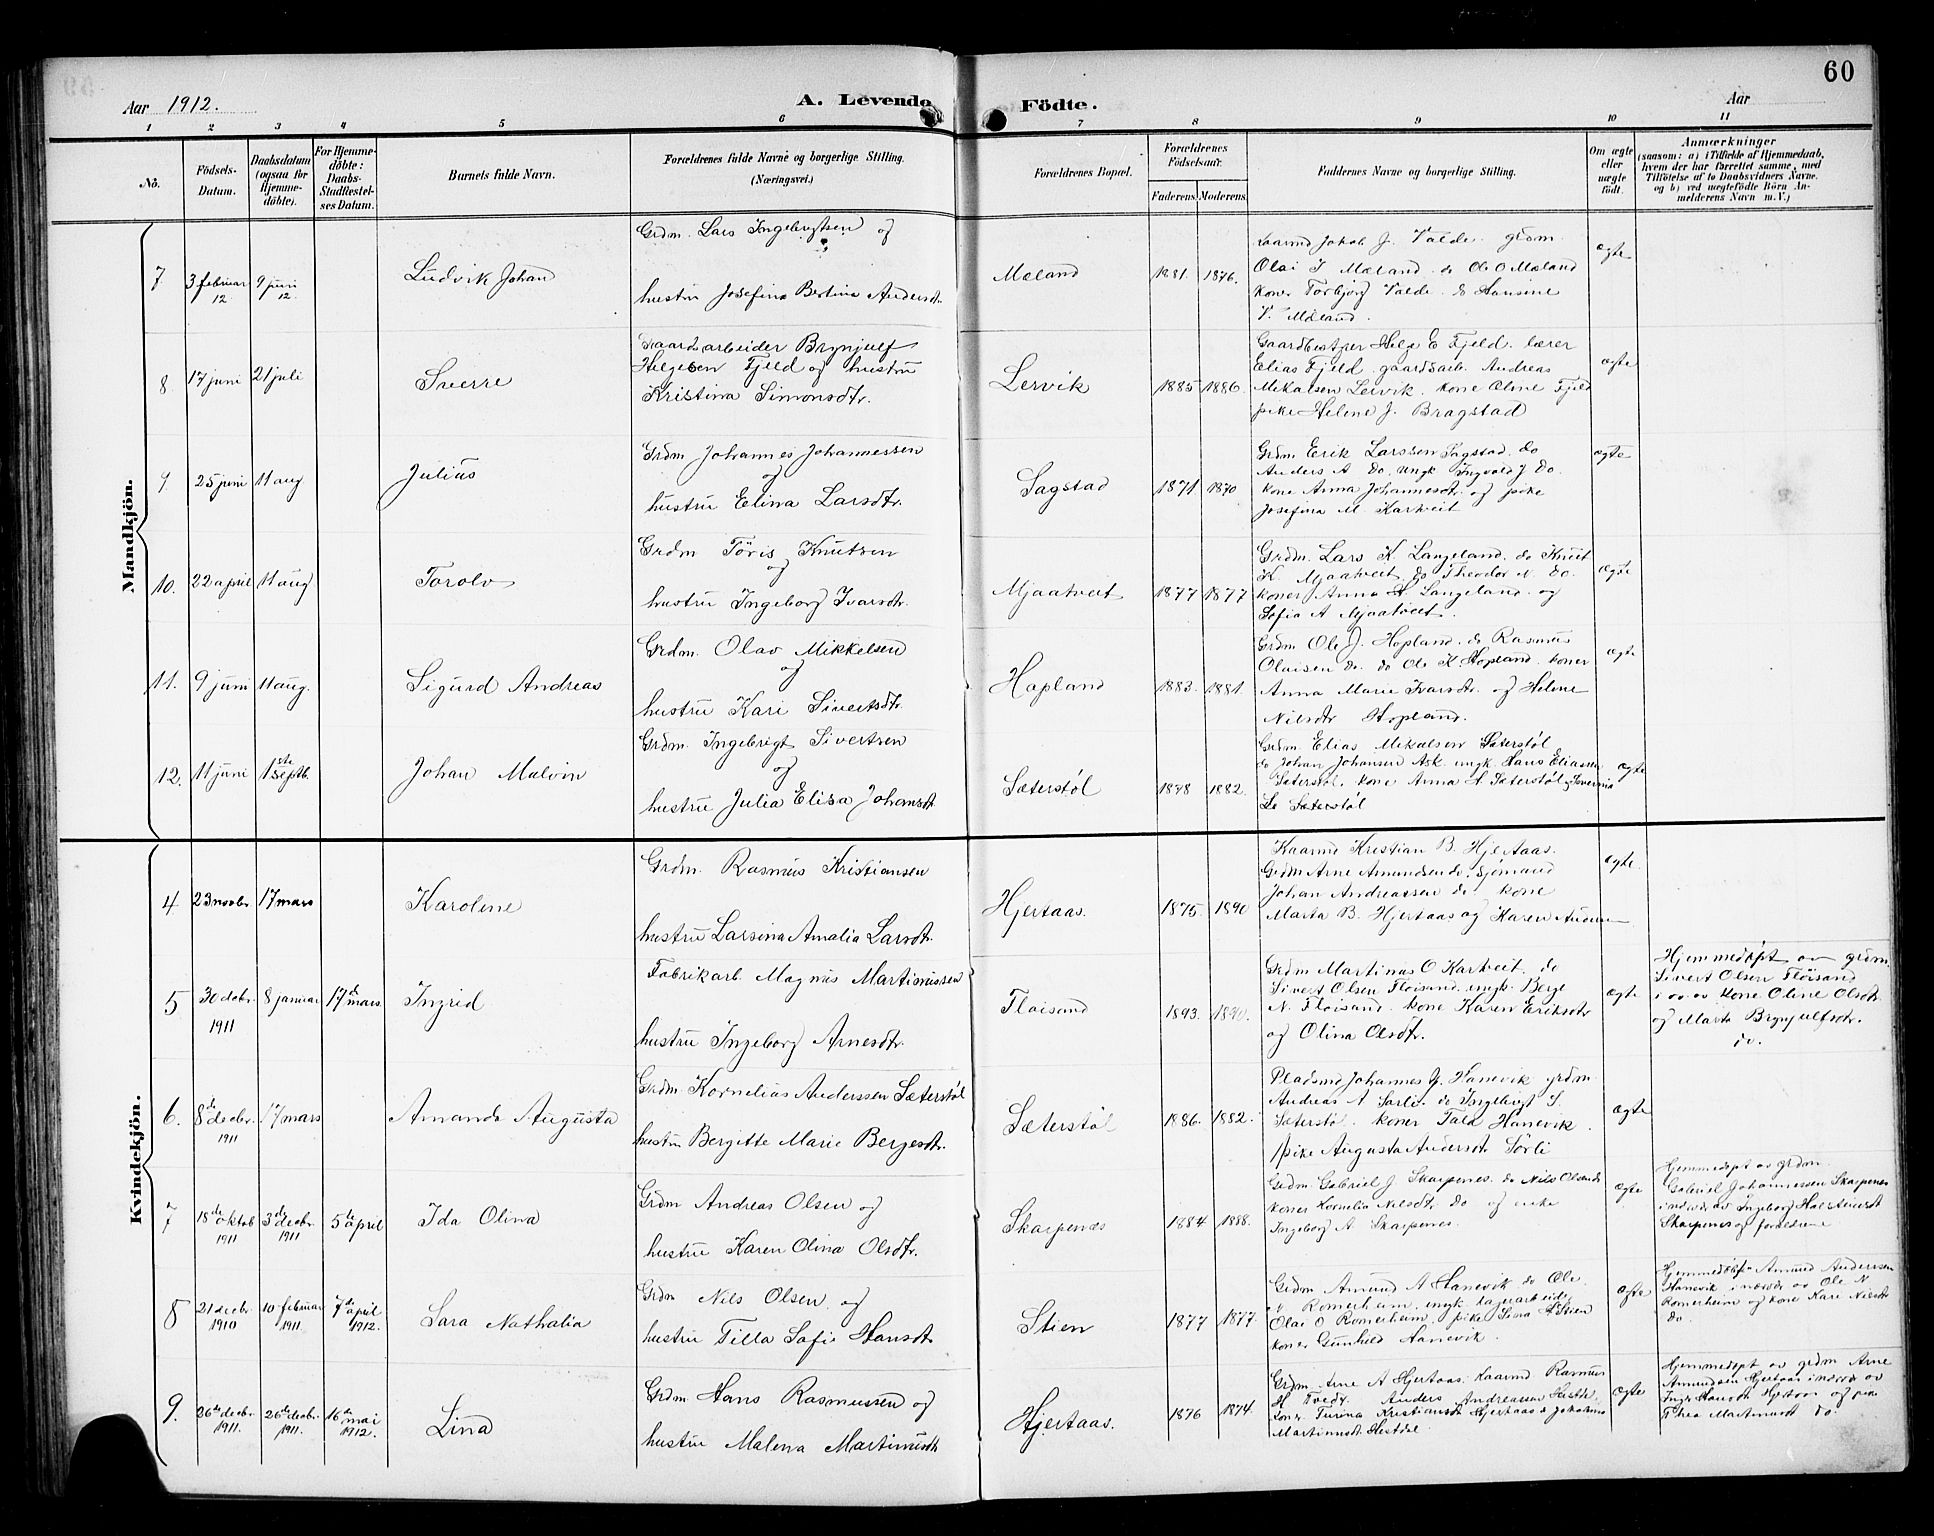 60
Aar 1912.
A. Levende Födte.
Aar
1 2 3 4 5 6 7 8 9 10 11
No.
Födsels-Datum.
Daabsdatum (ogsaa for Hjemme-döbte).
For Hjemme-döbte: Daabs-Stadfæstel-ses Datum.
Barnets fulde Navn.
Forældrenes fulde Navne og borgerlige Stilling.
(Næringsvei.)
Forældrenes Bopæl.
Forældrenes Födselsaar.
Faderens. Moderens.
Faddernes Navne og borgerlige Stilling.
Om ægte eller uægte födt.
Anmærkninger
(saasom: a) i Tilfælde af Hjemmedaab, hvem der har forrettet samme, med Tilföielse af to Daabsvidners Navne, og b) ved uægtefödte Börn Anmelderens Navn m.V.)
Mandkjön.
7 3 februar 12 9 juni 12. Ludvik Johan
Grdm. Lars Ingebrigtsen og
hustru Josefina Bertina Andersdt.
Mæland 1881. 1876.
Kaarmd Jakob J. Valde. grdm.
Olai I Mæland. do Ole O Mæland
koner Torbjørg Valde. do Hansine
V. Mæland.
ægte
8 17 juni 21 juli Sverre
Gaardsarbeider Brynjulf
Helgesen Fjeld og hustru
Kristina Simonsdtr.
Lervik 1885 1886.
Gaardbestyrer Helge E Fjeld. lærer
Elias Fjeld. gaardsarb. Andreas
Mikalsen Leivik. kone Oline Fjeld
pike Helene J. Bragstad
ægte
9. 25 juni 11 aug Julius
Grdm Johannes Johannessen
og
hustru Elina Larsdtr.
Sagstad 1871 1870
Grdm. Erik Larssen Sagstad. do
Anders A do. ungk Ingvald J do.
kone Anna Johannesdtr. og pike
Josefina M. Kartveit
ægte
10. 22 april 11 aug Torolv
Grdm Töris Knutsen
og
hustru Ingeborg Ivarsdtr.
Mjaatveit 1877 1877
Grdm. Lars K. Langeland. do Knut
K. Mjaatveit do Theodor do.
koner Anna A Langeland. og
Sofia A Mjaatveit.
ægte
11. 9 juni 11 aug. Sigurd Andreas
Grdm. Olav Mikkelsen
og
hustru Kari Sivertsdtr.
Hopland 1883. 1881.
Grdm Ole J. Hopland. do Rasmus
Olaisen do. do Ole K. Hopland. koner
Anna Marie Ivarsdtr. og Helene
Nilsdtr Hopland.
ægte
12. 11 juni 1ste septb. Johan Malvin
Grdm. Ingebrigt Sivertsen
og
hustru Julia Elisa Johansdt
Sæterstøl 1878 1882.
Grdm. Elias Mikalsen Sæterstøl
do Johan Johansen Ask. ungk. Hans Eliassen
Sæterstøl. kone Anna A Sæterstøl. Severina
Sæterstøl
ægte
Kvindekjön.
4 23 novbr 17 mars Karoline
Grdm. Rasmus Kristiansen
hustru Larsina Amalia Larsdtr.
Hjertaas. 1875. 1890
Kaarmd Kristian B. Hjertaas.
Grdm Arne Amundsen do. sjømand
Johan Andreassen do kone
Marta B. Hjertaas og Karen
ægte.
5 30 decbr. 1911 8 januar 17de mars Ingrid
Fabrikarb. Magnus Martinussen
hustru Ingeborg Arnesdtr.
Floisand 1893. 1890.
Grdm Martinus O Kartveit. do
Sivert Olsen Floisand. ungk. Berge
N. Floisand. kone Karen Eriksdtr
og Olina Olsdtr.
ægte
Hjemmedøpt av grdm.
Sivert Olsen Floisand
kone Oline Olsdt
og Marta Brynjulfsdtr.
6. 8de decbr. 1911 17 mars Amanda Augusta
Grdm. Kornelius Anderssen Sæterstøl
hustru Bergitte Marie Bergesdtr.
Sæterstøl 1886. 1882.
Pladsmd Johannes J. Hanevik grdm
Andreas A Sørli. do Ingebrigt S.
Sæterstøl. koner Hanevik.
pike Augusta Andersdtr Sörli
ægte
7 18de oktob 1911 3de decbr. 1911 5te april Ida Olina
Grdm Andreas Olsen og
hustru Karen Olina Olsdtr.
Skarpenæs 1884 1888.
Grdm. Gabriel J. Skarpenes. do Nils Olsen do
koner Kornelia Nilsdtr. do og enke
Ingeborg A. Skarpenes.
ægte
Hjemmedøpt av grdm.
Gabriel Johannessen Skarpenes
Ingeborg Halstensdt
Skarpenes og forældrene
8 21 decbr. 1910 10 februar 1911. 7de april 1912. Sara Nathalia
Grdm Nils Olsen og
hustru Tilla Sofie Hansdt
Stien 1877 1877.
Grdm Amund A Hanevik do Ole
Romerheim. ungk. lagerarbeider
Olai O Romerheim. pike Sina A Stien
koner Gunhild Hanevik.
ægte
Hjemmedøpt Amund Anderssen
Hanevik i nærvær av Ole N
Romerheim og kone Kari Nilsdt
do
9. 26de decbr 1911. 26de decbr. 1911. 16de mai 1912. Lina
Grdm. Hans Rasmussen og
hustru Malena Martinusdt
Hjertaas. 1876 1874.
Grdm. Arne A Hjertaas. kaarmd Rasmus
H Tvedt. Anders Andreassen
koner Turina Kristiansdt Hjertaas do
Martinusdt. Hestdal
ægte
Hjemmedøpt av grdm Arne
Amundsen Hjertaas i nærvær av
Hjertaas og pike
Thea Martinusdt do.